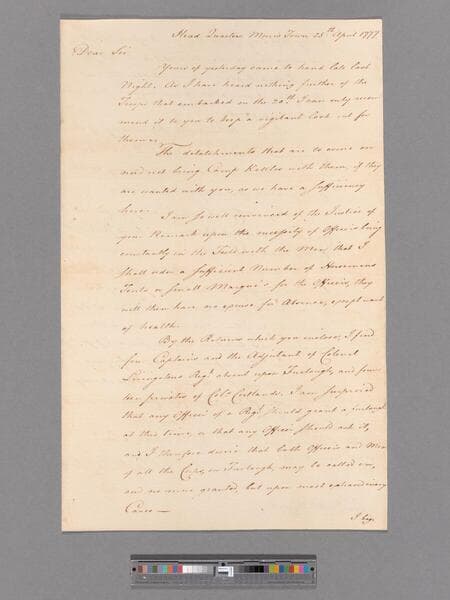 Head Quarters Morris Town 25th April 1777
Dear Sir
Yours of yesterday came to hand late last
Night. As I have heard nothing further of the
Troops that embarked on the 20th I can only recom
mend it to you to keep a vigilant look out for
them.
The detatchments that are to come on
need not bring Camp Kettles with them, if they
are wanted with you, as we have a sufficiency
here.
I am so well convinced of the Justice of
your Remark upon the necessity of Officers being
constantly in the Field with the Men, that I
shall order a sufficient Number of Horsemans
Tents or small Marque's for the Officers, they
will then have no excuse for Absence, except want
of health.
By the Returns which you inclose, I find
Captains and the Adjutant of Colonel
Livingstons Regt absent upon Furlough, and four
teen privates of Colo Cortlands. I am surprised
that any Officer of a Regt should grant a furlough
at this time, or that any Officer should ask it,
and I therefore desire that both Officers and Men
of all the Corps, on Furlough, may be called in,
and no more granted, but upon most extraordinary
Cause —
I beg